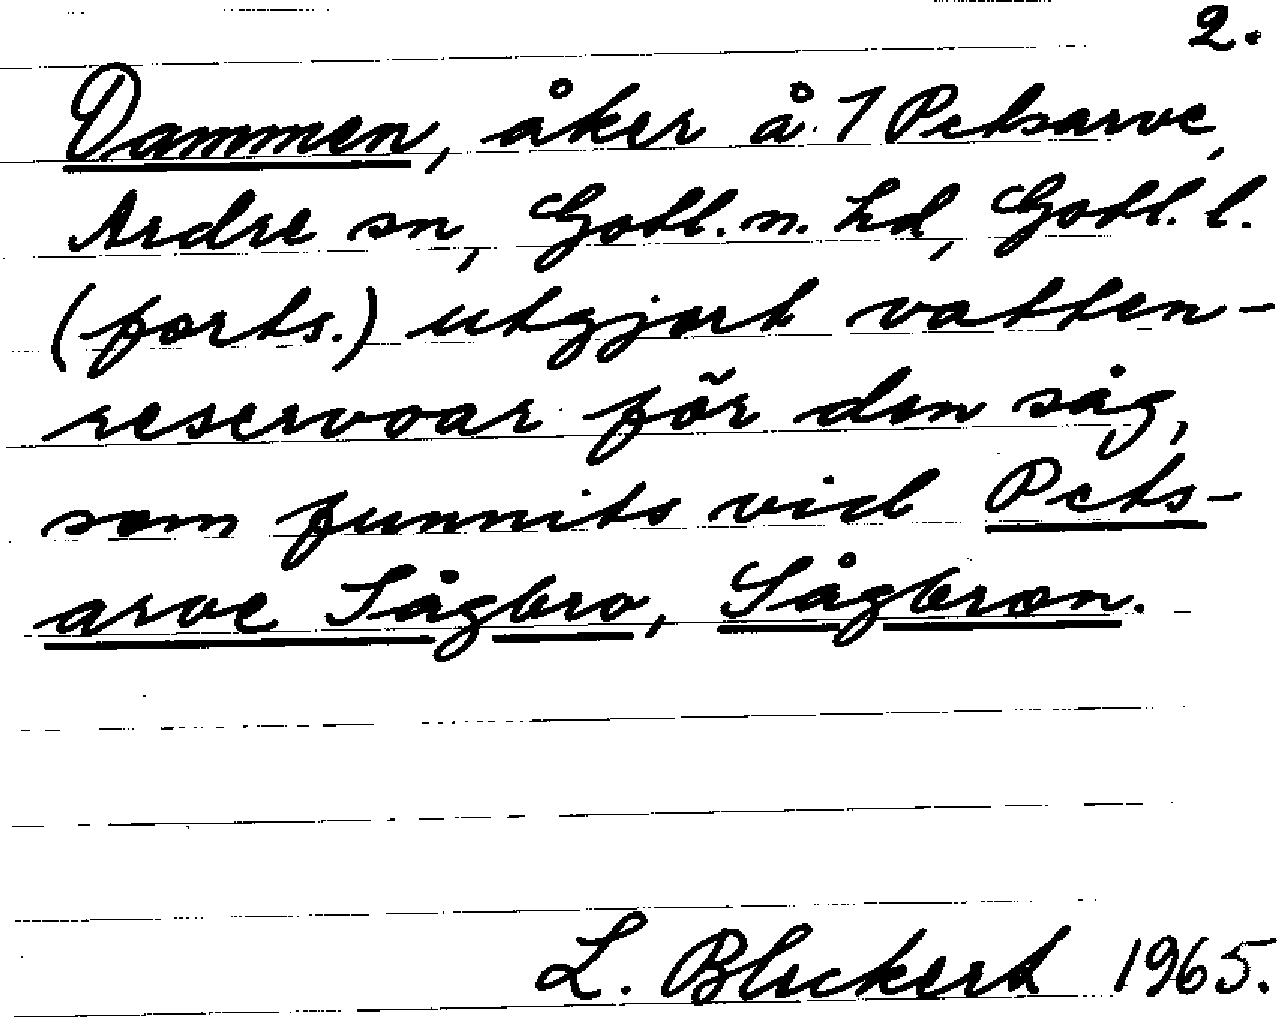 2.
Dammen, åker å 1 Petsarve,
Ardre sn, Gotl. n. hd, Gotl. l.
(forts.) utgjort vatten-
reservoar för den såg,
som funnits vid Pets-
arve Sågbro, Sågbron.
L. Blickert 1965.